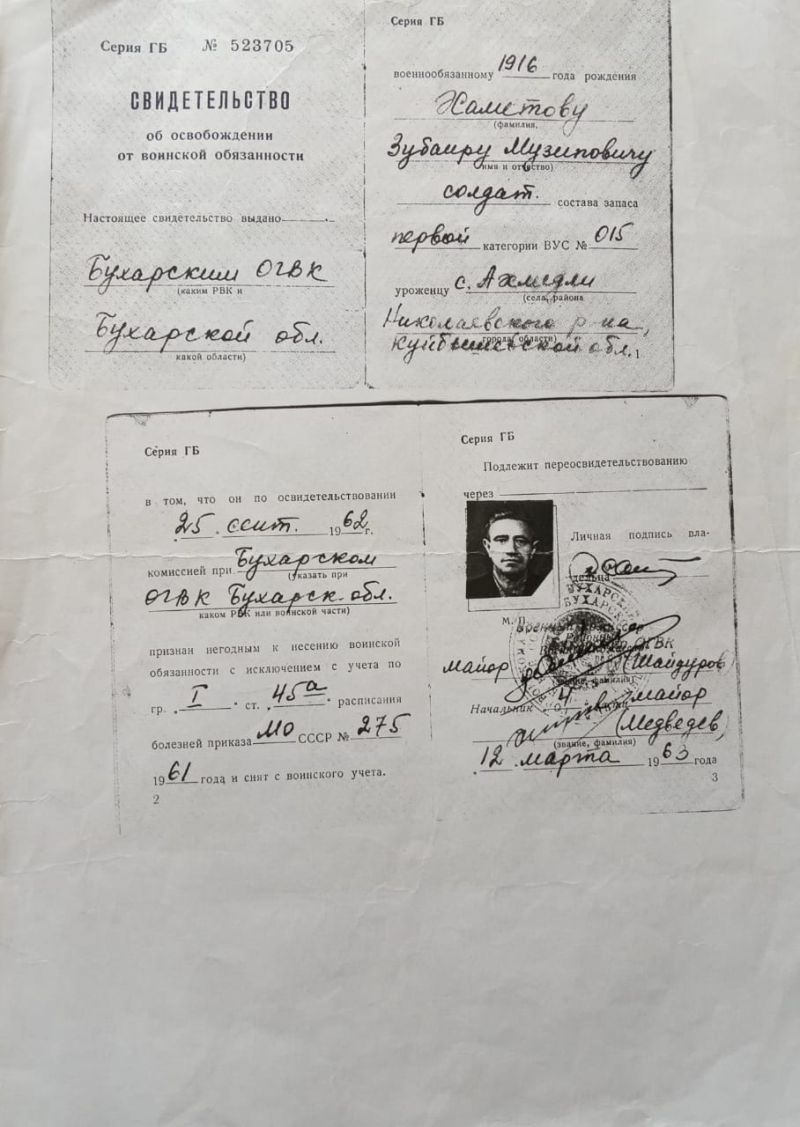 Серия ГБ № 523705
СВИДЕТЕЛЬСТВО
об освобождении
от воинской обязанности
Настоящее свидетельство выдано
Бухарским ОГВК
(каким РВК и
Бухарской обл.
какой области)
Серия ГБ
военнообязанному 1916 года рождения
Хаметову
(фамилия,
Зубаиру Музиповичу
имя и отчество)
солдат. состава запаса
первой категории ВУС № 015
уроженцу с. Ахмедли
(села, района
Николаевского р-на,
города, области)
Куйбышевской обл. 1
Серия ГБ
в том, что он по освидетельствовании
25. сент. 1962 г.
комиссией при Бухарском
(указать при
ОГВК Бухарск. обл.
каком РВК или воинской части)
признан негодным к несению воинской
обязанности с исключением с учета по
гр. „I" ст. „45а" расписания
болезней приказа МО СССР № 275
1961 года и снят с воинского учета.
2
Серия ГБ
Подлежит переосвидетельствованию
через
Личная подпись вла-
дельца
М. П.
Военный комиссар
ОГВК
майор (Шайдуров)
(звание, фамилия)
Начальник 4
майор
(Медведев)
(звание, фамилия)
12 марта 1963 года
3